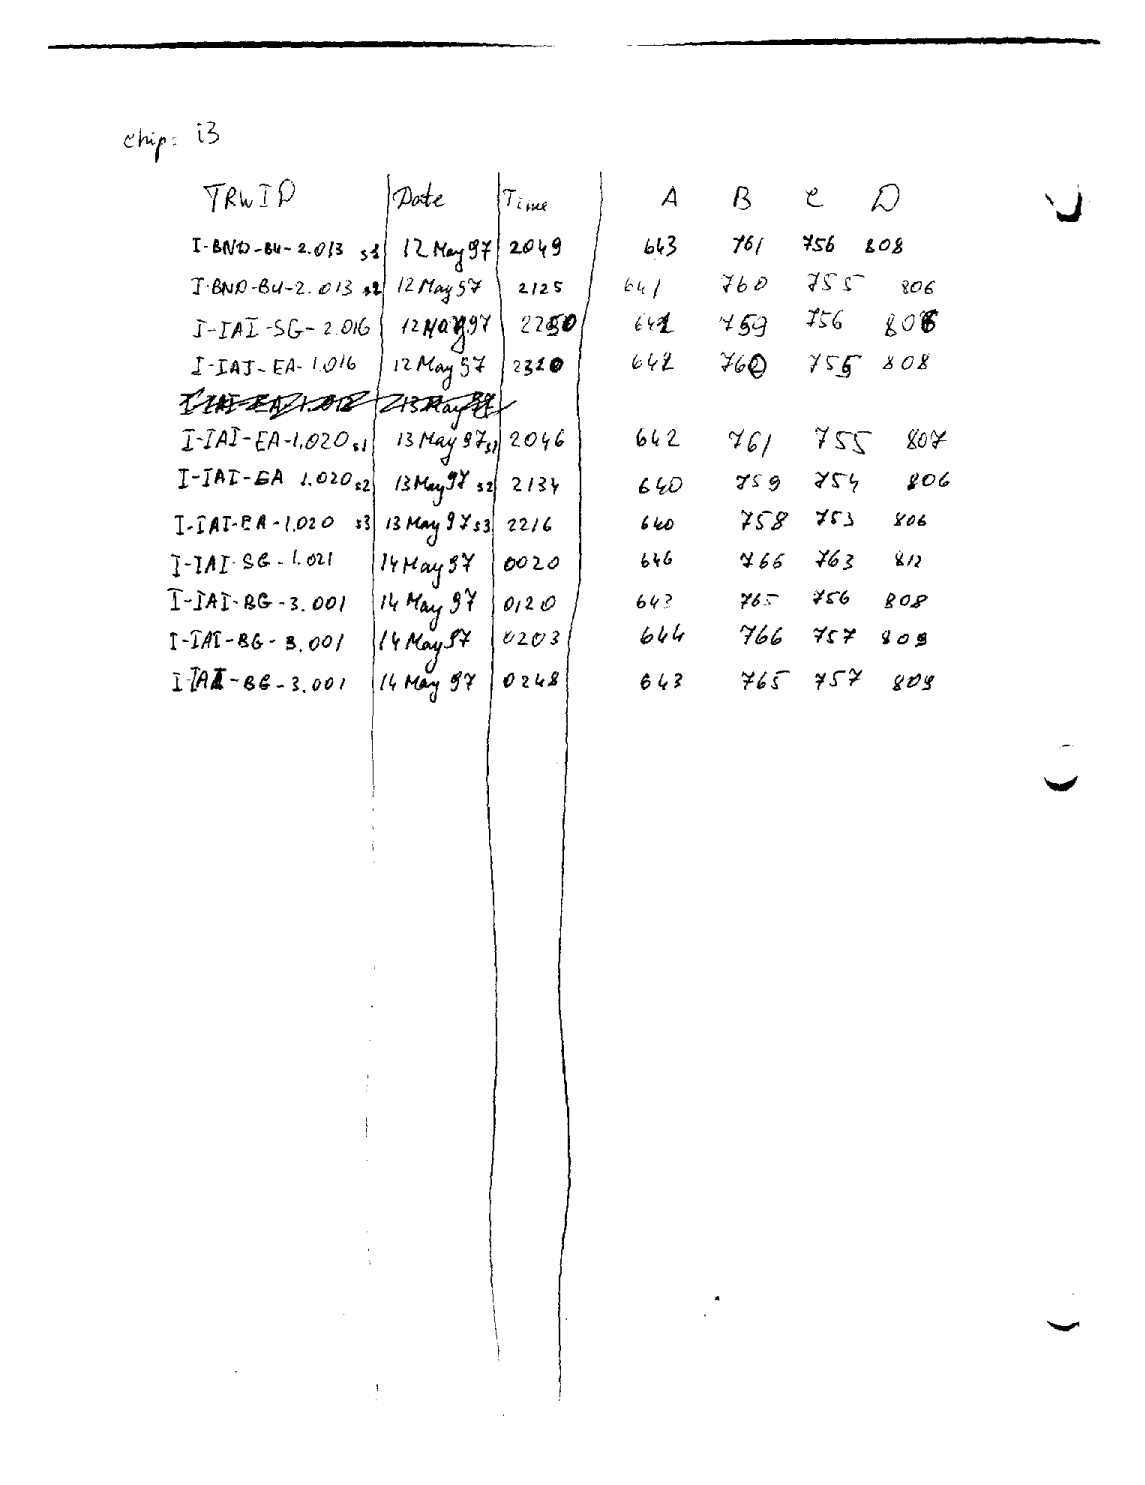 chip: i3
TRWID Date Time A B C D
I-BND-BU-2.013 s1 12 May 97 2049 643 761 756 808
I-BND-BU-2.013 s2 12 May 97 2125 641 760 755 806
I-IAI-SG-2.016 12 May 97 2250 642 759 756 808
I-IAI-EA-1.016 12 May 97 2320 642 760 755 808
I-IAI-EA-1.020 s1 13 May 97 s1 2046 642 761 755 807
I-IAI-EA 1.020 s2 13 May 97 s2 2134 640 759 754 806
I-IAI-EA-1.020 s3 13 May 97 s3 2216 640 758 753 806
I-IAI-SG-1.021 14 May 97 0020 646 766 763 812
I-IAI-BG-3.001 14 May 97 0120 643 765 756 808
I-IAI-BG-3.001 14 May 97 0203 644 766 757 809
I-IAI-BG-3.001 14 May 97 0248 643 765 757 809